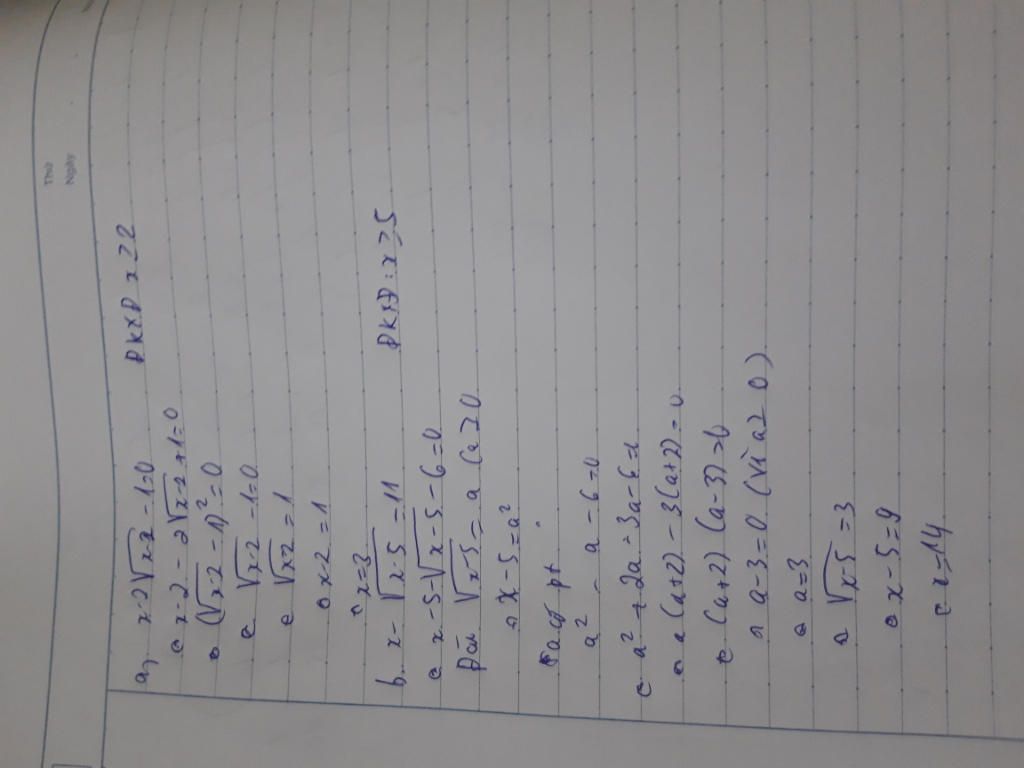 Thứ
Ngày
a, x-2√x-2 -1=0 ĐKXĐ x≥2
⇔ x-2-2√x-2+1=0
⇔ (√x-2 -1)²=0
⇔ √x-2 -1=0
⇔ √x-2=1
⇔ x-2=1
⇔ x=3
b. x-√x-5=11 ĐKXĐ: x≥5
⇔ x-5-√x-5-6=0
Đặt √x-5=a (a≥0
⇒ x-5=a²
Ta có pt
a²-a-6=0
⇔ a²+2a-3a-6=0
⇔ a(a+2)-3(a+2)=0
⇔ (a+2)(a-3)=0
⇔ a-3=0 (vì a≥0)
⇔ a=3
⇔ √x-5=3
⇔ x-5=9
⇔ x=14